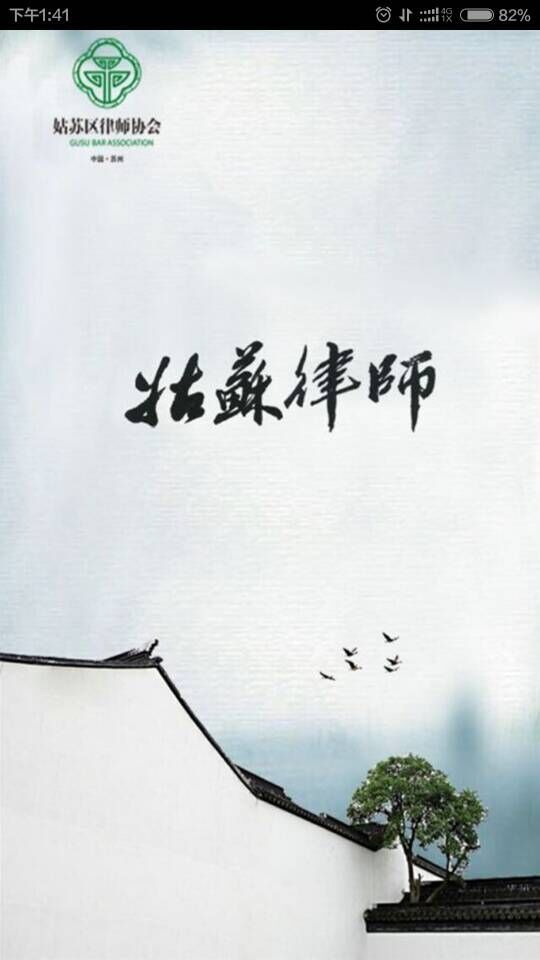 下午1:41
4G
1X
82%
姑苏区律师协会
GUSU BAR ASSOCIATION
中国·苏州
姑蘇律師